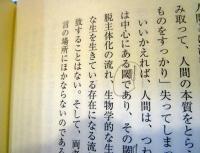 み取って、人間の本質をとら
ものをすっかり」失ってしまう
いいかえれば、人間は、つね
は中心にある閾であり、その閾
脱主体化の流れ、生物学的な生
な生を生きている存在になる流
致することはない。そして、両
言の場所にほかならないのである